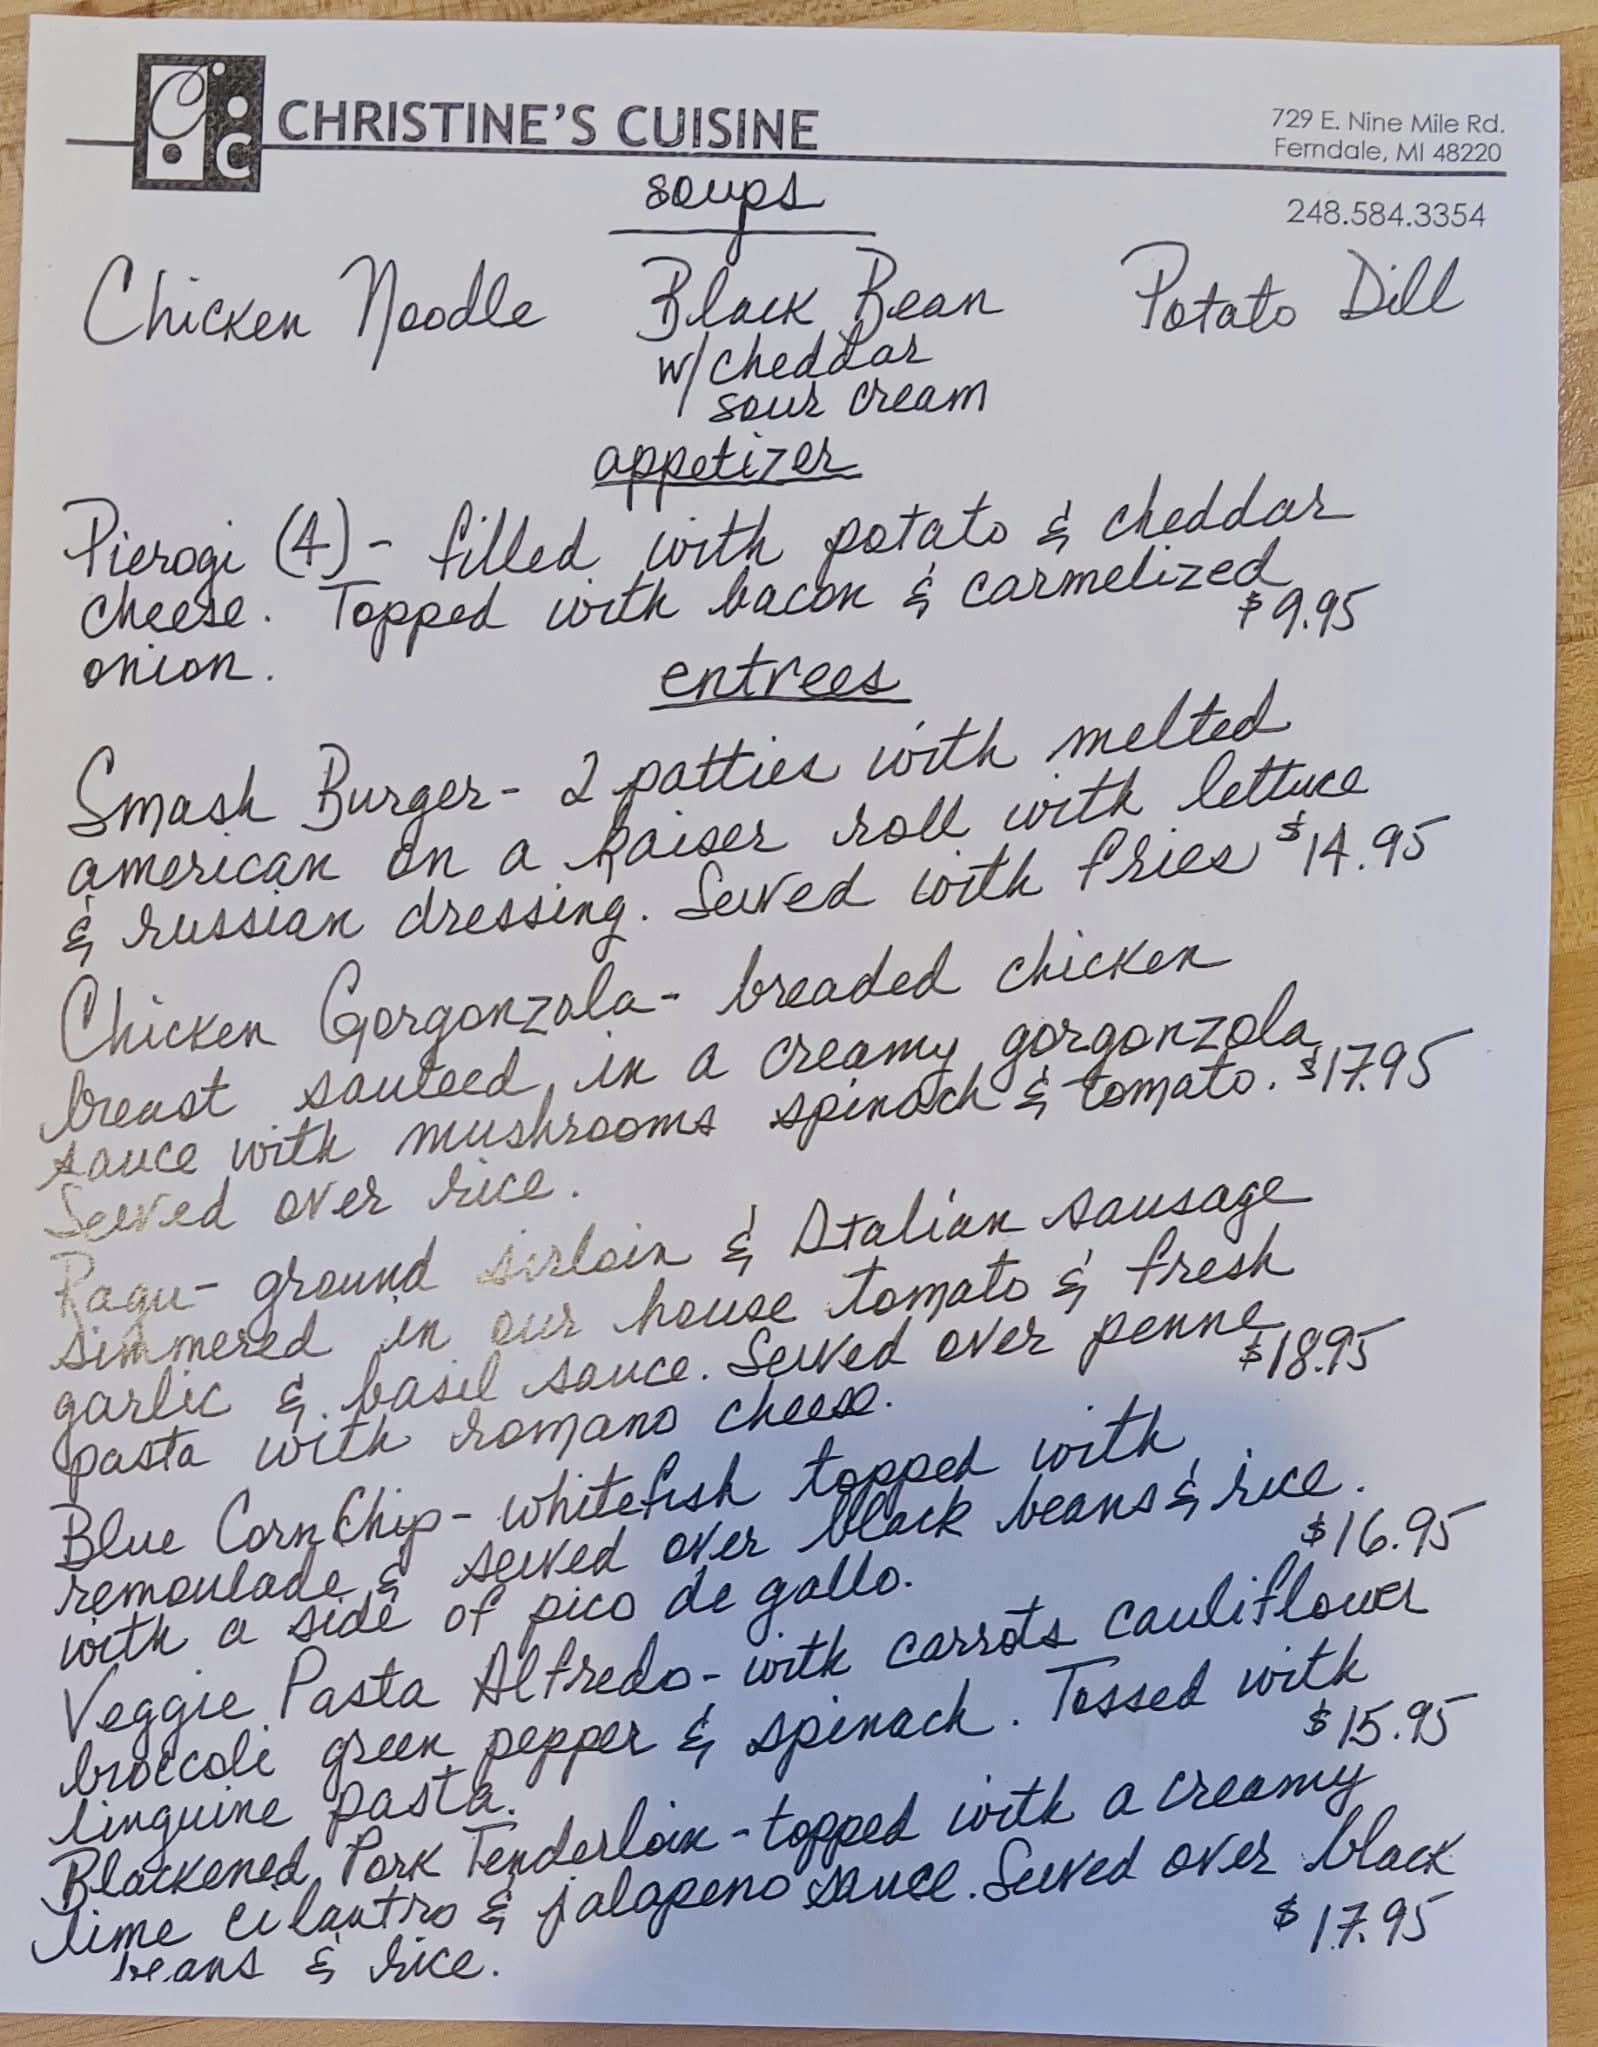 CHRISTINE'S CUISINE
729 E. Nine Mile Rd.
Ferndale, MI 48220
248.584.3354
soups
Chicken Noodle Black Bean Potato Dill
w/ cheddar
sour cream
appetizer
Pierogi (4) - filled with potato & cheddar
cheese. Topped with bacon & carmelized
onion. $9.95
entrees
Smash Burger - 2 patties with melted
american on a kaiser roll with lettuce
& russian dressing. Served with fries $14.95
Chicken Gorgonzola - breaded chicken
breast sauteed in a creamy gorgonzola
sauce with mushrooms spinach & tomato. $17.95
Served over rice.
Ragu - ground sirloin & Italian sausage
simmered in our house tomato & fresh
garlic & basil sauce. Served over penne $18.95
pasta with romano cheese.
Blue Corn Chip - whitefish topped with
remoulade & served over black beans & rice.
with a side of pico de gallo. $16.95
Veggie Pasta Alfredo - with carrots cauliflower
broccoli green pepper & spinach. Tossed with
linguine pasta. $15.95
Blackened Pork Tenderloin - topped with a creamy
lime cilantro & jalapeno sauce. Served over black
beans & rice. $17.95